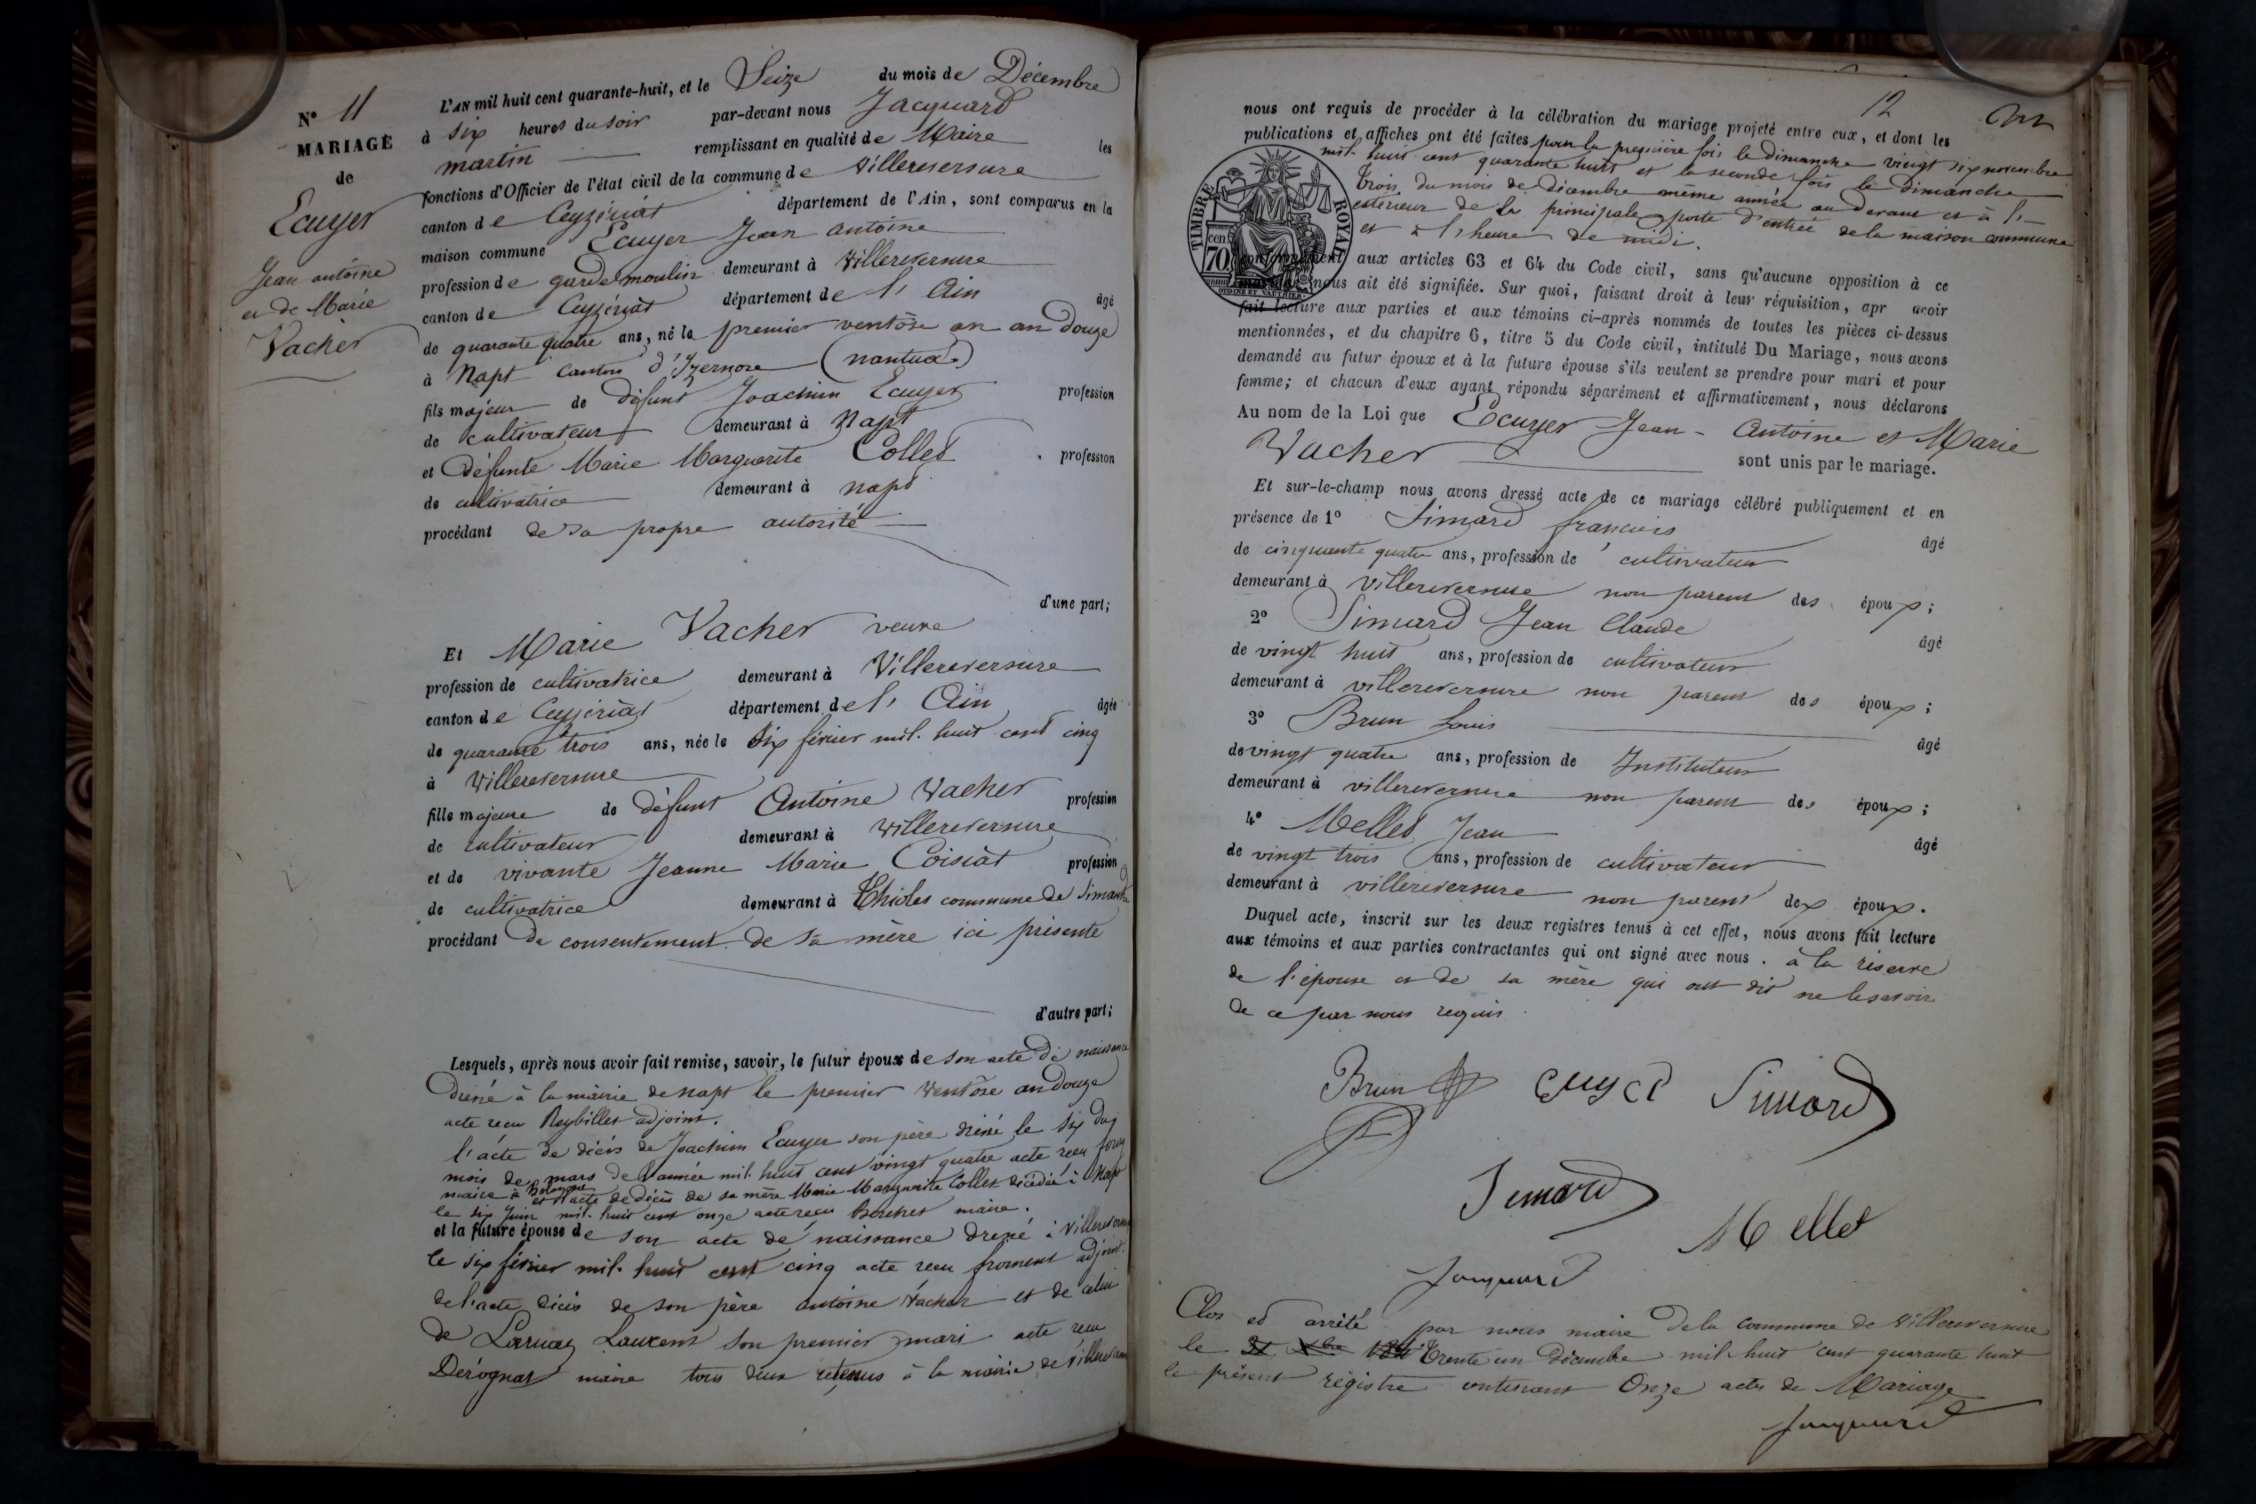 N° 11
MARIAGE
de
Ecuyer
Jean antoine
et de Marie
Vacher
L'AN mil huit cent quarante-huit, et le Seize du mois de Décembre
à six heures du soir par-devant nous Jacquard
martin remplissant en qualité de Maire les
fonctions d'Officier de l'état civil de la commune de Villereversure
canton de Ceyzériat département de l'Ain, sont comparus en la
maison commune Ecuyer Jean antoine
profession de garde moulin demeurant à Villereversure
canton de Ceyzériat département de l'Ain âgé
de quarante quatre ans, né le premier ventôse an an douze
à Napt canton d'Izernore (nantua)
fils majeur de défunt Joachim Ecuyer profession
de cultivateur demeurant à Napt
et défunte Marie Marguerite Collet profession
de cultivatrice demeurant à napt
procédant de sa propre autorité
d'une part;
Et Marie Vacher veuve
profession de cultivatrice demeurant à Villereversure
canton de Ceyzériat département de l'Ain âgée
de quarante trois ans, née le six février mil huit cent cinq
à Villereversure
fille majeure de défunt Antoine Vacher profession
de cultivateur demeurant à Villereversure
et de vivante Jeanne Marie Coisiat profession
de cultivatrice demeurant à Thioles commune de Simandre
procédant du consentement de sa mère ici présente
d'autre part;
Lesquels, après nous avoir fait remise, savoir, le futur époux de son acte de naissance
dressé à la mairie de napt le premier ventôse an douze
acte reçu Reybillet adjoint.
l'acte de décès de Joachim Ecuyer son père dressé le six du
mois de mars de l'année mil huit cent vingt quatre acte reçu
maire à et l'acte de décès de sa mère Marie Marguerite Collet décédée à Napt
le six Juin mil huit cent onze acte reçu Bochet maire.
et la future épouse de son acte de naissance dressé à Villereversure
le six février mil huit cent cinq acte reçu froment adjoint
de l'acte décès de son père antoine Vacher et de celui
de Larnay Laurent son premier mari acte reçu
Dérognat maire tous deux retenus à la mairie de Villereversure
12
nous ont requis de procéder à la célébration du mariage projeté entre eux, et dont les
publications et affiches ont été faites pour la première fois le dimanche vingt six novembre
mil huit cent quarante huit et la seconde fois le dimanche
trois du mois de décembre même année au devant et à l'
extérieur de la principale porte d'entrée de la maison commune
et à l'heure de midi.
TIMBRE ROYAL
70 cen
conformément aux articles 63 et 64 du Code civil, sans qu'aucune opposition à ce
mariage nous ait été signifiée. Sur quoi, faisant droit à leur réquisition, apr avoir
fait lecture aux parties et aux témoins ci-après nommés de toutes les pièces ci-dessus
mentionnées, et du chapitre 6, titre 5 du Code civil, intitulé Du Mariage, nous avons
demandé au futur époux et à la future épouse s'ils veulent se prendre pour mari et pour
femme; et chacun d'eux ayant répondu séparément et affirmativement, nous déclarons
Au nom de la Loi que Ecuyer Jean-Antoine et Marie
Vacher sont unis par le mariage.
Et sur-le-champ nous avons dressé acte de ce mariage célébré publiquement et en
présence de 1° Simard françois âgé
de cinquante quatre ans, profession de cultivateur
demeurant à villereversure non parent des époux;
2° Simard Jean Claude âgé
de vingt huit ans, profession de cultivateur
demeurant à villereversure non parent des époux;
3° Brun Louis âgé
de vingt quatre ans, profession de Instituteur
demeurant à villereversure non parent des époux;
4° Mellet Jean âgé
de vingt trois ans, profession de cultivateur
demeurant à villereversure non parent dex époux.
Duquel acte, inscrit sur les deux registres tenus à cet effet, nous avons fait lecture
aux témoins et aux parties contractantes qui ont signé avec nous. à la réserve
de l'épouse et de sa mère qui ont dit ne le savoir
de ce par nous requis.
Brun Ecuyer Simard
Simard
Mellet
Jacquard
Clos et arrêté par nous maire de la commune de Villereversure
le 31 Xbre trente un décembre mil huit cent quarante huit
le présent régistre contenant Onze actes de Mariage
Jacquard